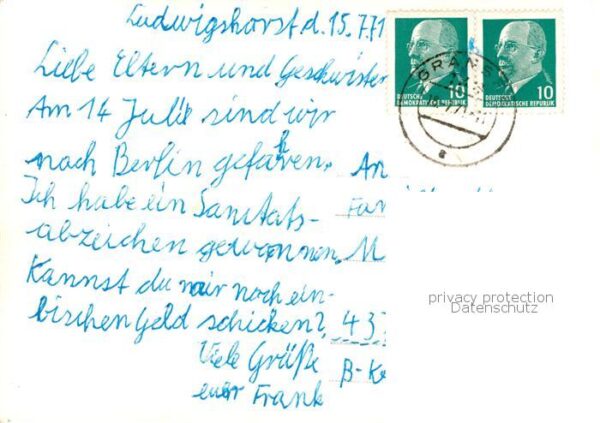 Ludwigshorst d. 15.7.71
Liebe Eltern und Geschwister
Am 14 Julie sind wir
nach Berlin gefahren. An
Ich habe ein Sanitats- Fam
abzeichen gewonnen. M
Kannst du mir noch ein-
bischen Geld schicken? 437
Viele Grüße B-Ke
euer Frank
DEUTSCHE
DEMOKRATISCHE REPUBLIK
10
DEUTSCHE
DEMOKRATISCHE REPUBLIK
10
privacy protection
Datenschutz